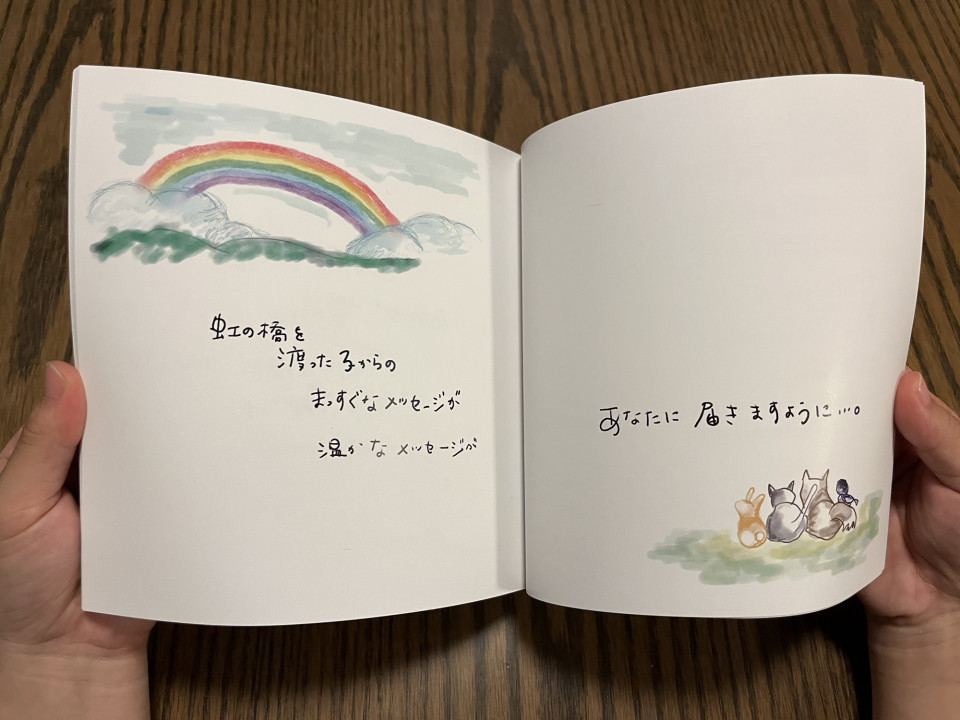 虹の橋を
渡った子からの
まっすぐなメッセージが
温かなメッセージが
あなたに届きますように…。